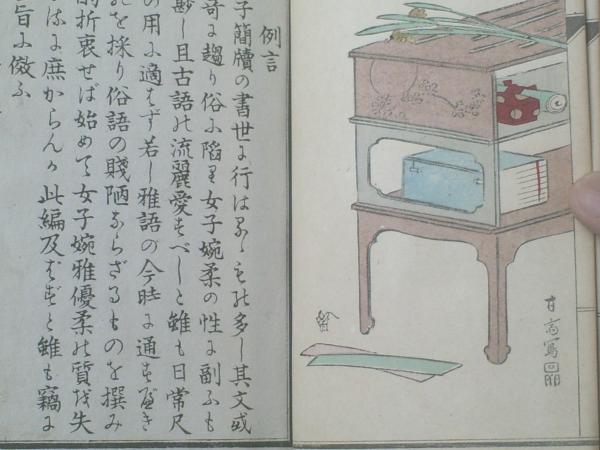 例言
子簡牘の書世に行はるゝもの多し其文或
奇に趨り俗に陥り女子婉柔の性に副ふも
尠し且古語の流麗愛すべしと雖も日常尺
の用に適はず若し雅語の今時に通ずべき
を採り俗語の賤陋ならざるものを撰み
折衷せば始めて女子婉雅優柔の質を失
に庶からんか此編及ばずと雖も竊に
旨に倣ふ